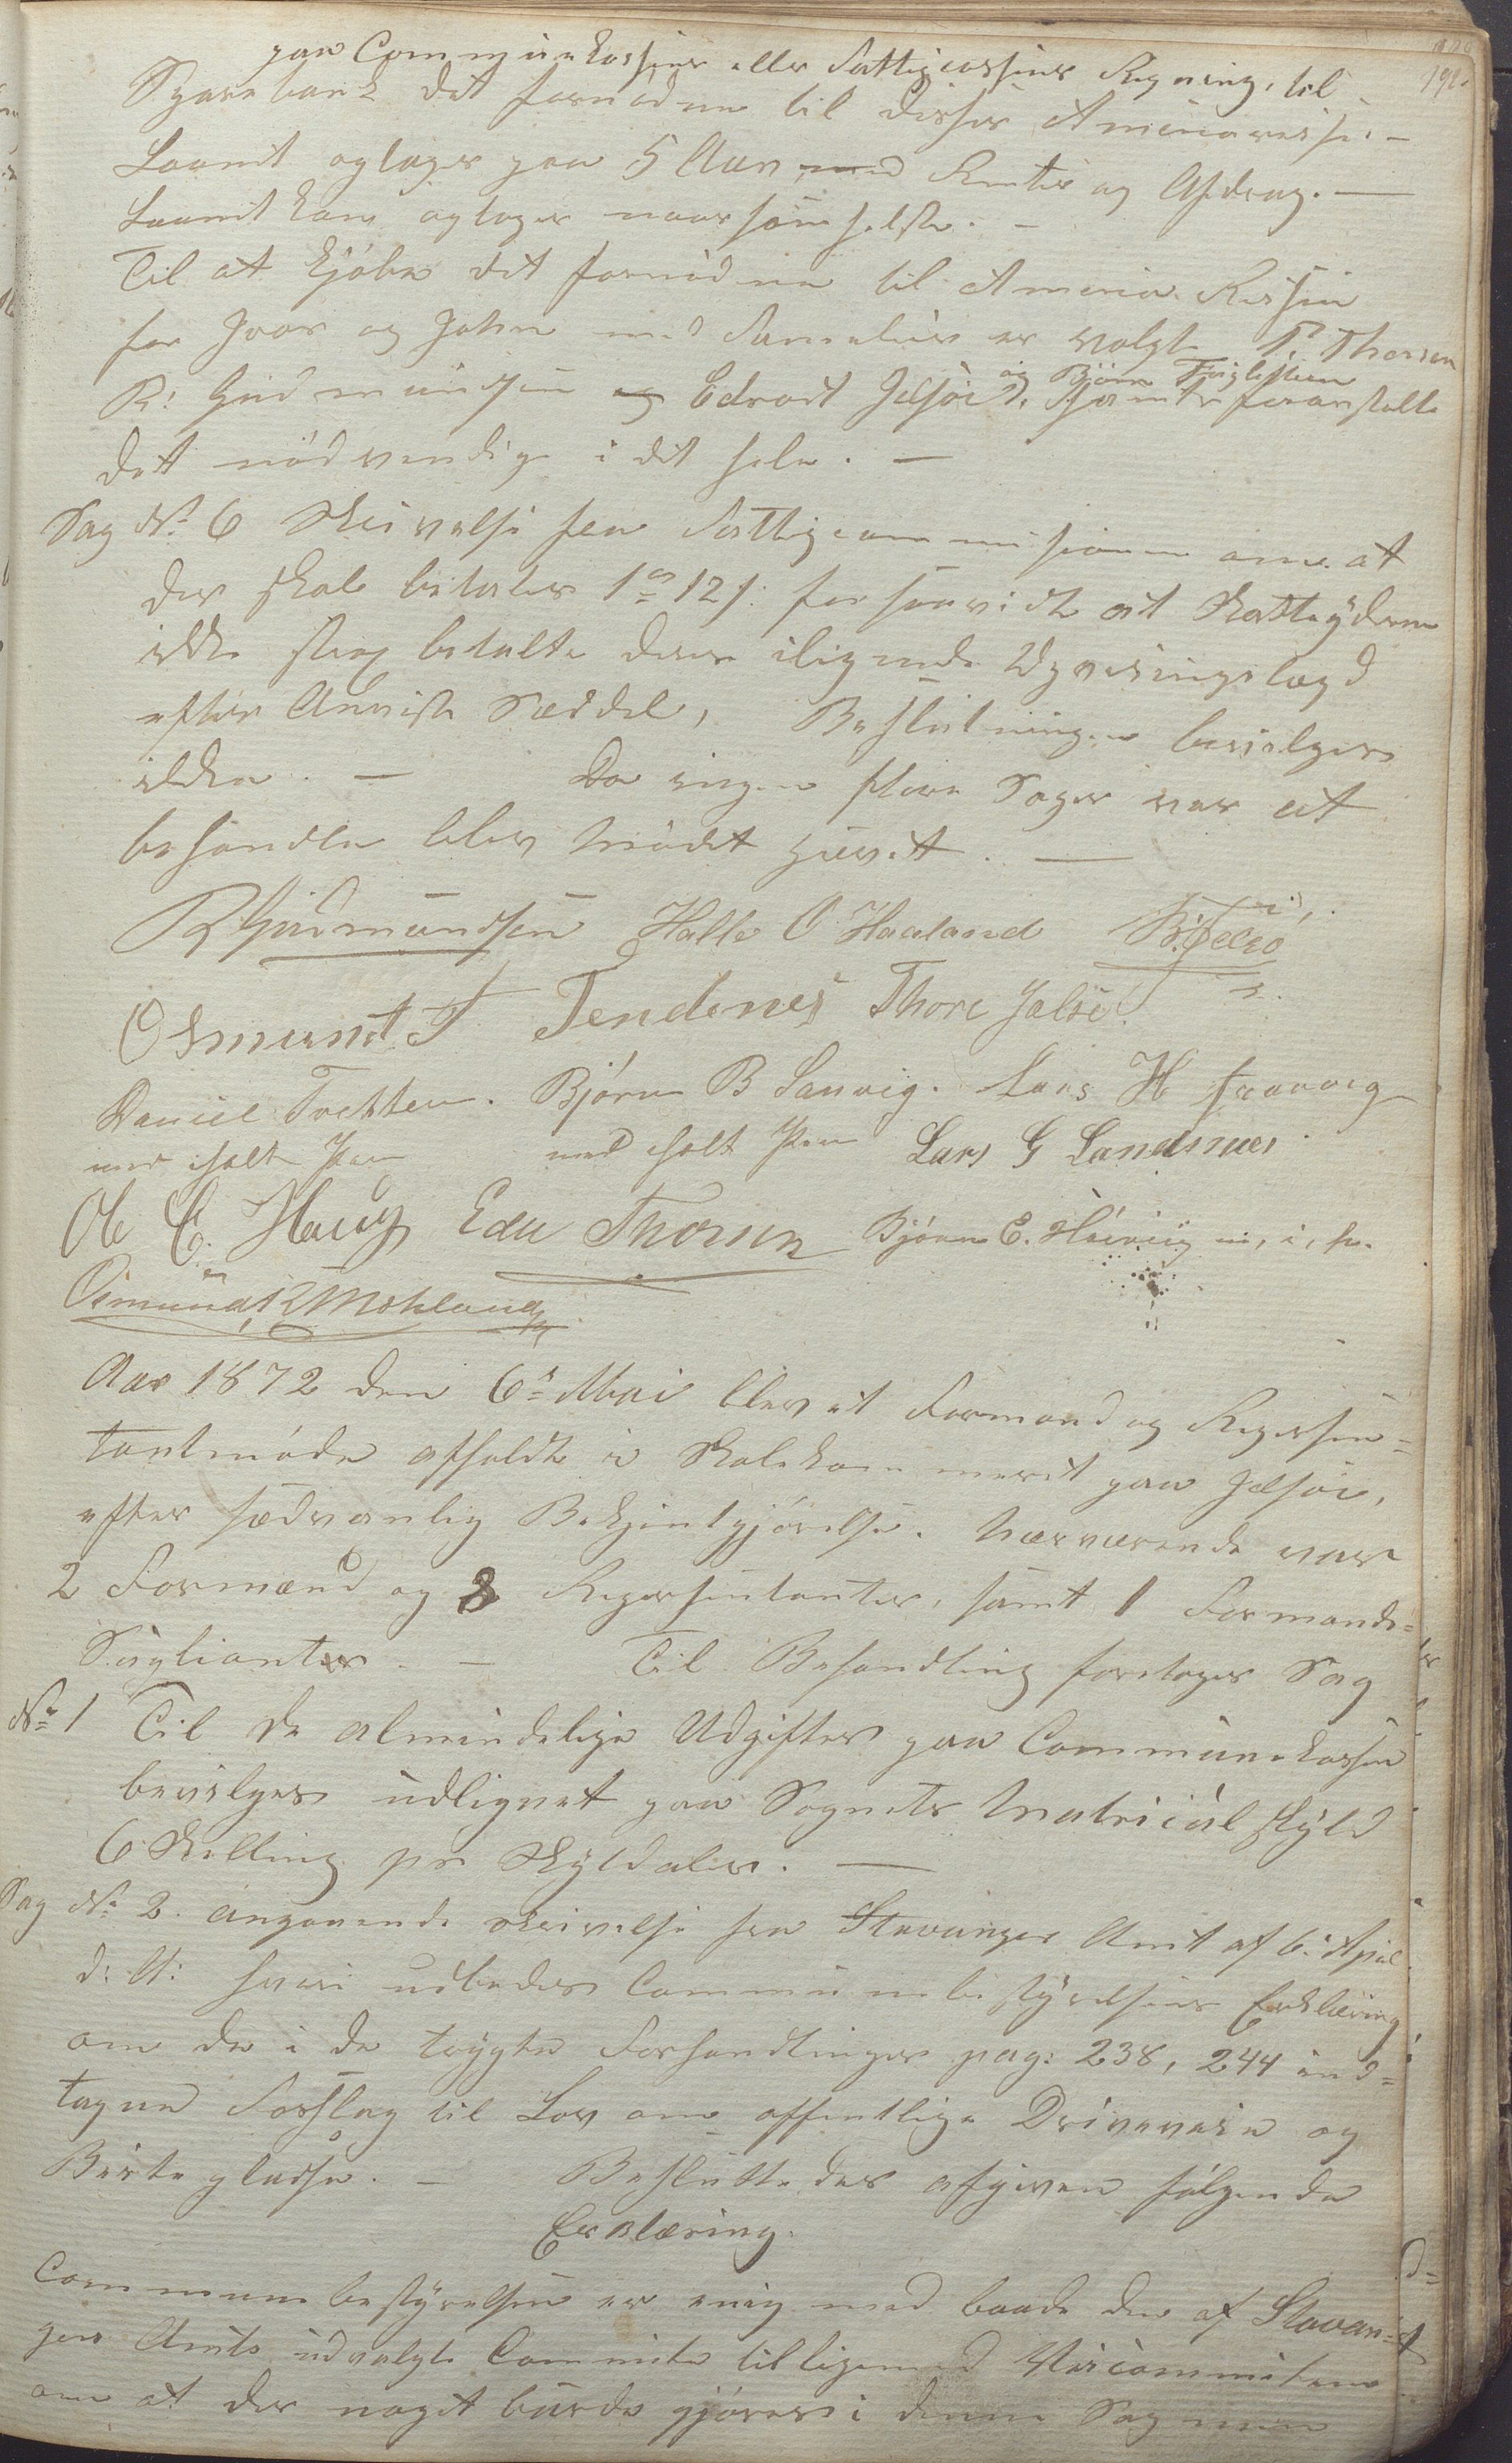 191.
paa Communekassens eller Fattigcassens Regning, til
Sparebank det fornødne til disses Americareise. —
Laanet optages paa 5 Aar med Renter og Afdrag. —
Laanet kan optages naarsomhelst. —
Til at kjøbe det fornødne til America Reisen
for Ivar og John med Famelier er valgt T. Thorsen
og Bjørn Fuglestein
R. Gudmundsen og Edvart Jelsøe, Samt foranstalte
det nødvendige i det hele. —
Sag No 6 Skrivelse fra Fattigcommisionen om at
der skal betales 12 s: forsaavidt at Skatteyderne
ikke strax betalte deres ilignede Udpresningslægd
efter Anviste Sæddel, Beslutningen bevilges
ikke. — Da ingen flere Sager var at
behandle blev Mødet hævet. —
R Gudmundsen Halle O Haaland B. Øelsø
Osmund T Tendenes Thore Jelsøe
Daniel Tveteen. Bjørn B Sanvig. Lars H Haavig
med holt Pen med holt Pen Lars G Landsnes
Ole E. Haug Edv Thorsen Bjørn E. Høivig m, i, p.
Osmund R Mehland
Aar 1872 den 6te Mai blev et Formand og Repræsen=
tantmøde afholdt i Skolekammeret paa Jelsøe,
efter sædvanlig Bekjentgjørelse. Nærværende var
2 Formænd og 8 Repræsentanter, samt 1 Formands=
Supliantes. — Til Behandling foretages Sag
No 1 Til de almindelige Udgifter paa Communekassen
bevilges udlignet paa Sognets Matriculskyld
6 Skilling pr Skylddaler. —
Sag No 2. angaaende skrivelse fra Stavanger Amt af 6. April
d: A: hvori udbedes Communebestyrelsens Erklæring
om de i de trygte Forhandlinger pag: 238, 244 ind=
tagne Forslag til Lov om offentlige Driveveie og
Bedepladse. — Besluttedes afgiven følgende
Erklæring.
Communebestyrelsen er enig med baade den af Stavan=
ger Amts udvalgte Committe tilligemed Veicommiteen
om at der noget burde gjøres i denne Sag men